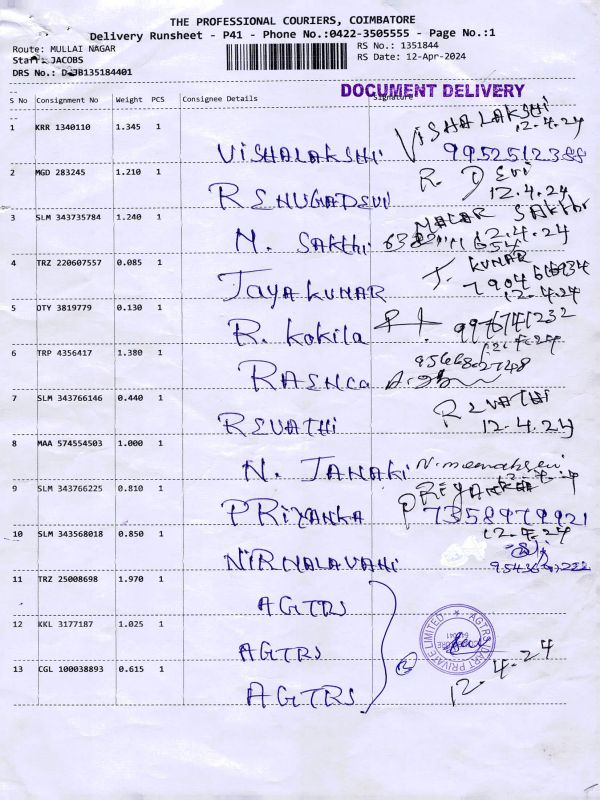 THE PROFESSIONAL COURIERS, COIMBATORE
Delivery Runsheet - P41 - Phone No.:0422-3505555 - Page No.:1
Route: MULLAI NAGAR
RS No.: 1351844
Staff: JACOBS
RS Date: 12-Apr-2024
DRS No.: D-JB135184401
DOCUMENT DELIVERY
S No Consignment No Weight PCS Consignee Details Signature
1 KRR 1340110 1.345 1 VISHALAKSHI VISHALAKSHI
12.4.24
9952512388
2 MGD 283245 1.210 1 RENUGADEVI R. DEVI
12.4.24
3 SLM 343735784 1.240 1 M. SAKTHI
12.4.24
4 TRZ 220607557 0.085 1 JAYAKUMAR J. KUMAR
7904616934
12.4.24
5 OTY 3819779 0.130 1 R. Kokila
9976741232
12.4.24
6 TRP 4356417 1.380 1
7 SLM 343766146 0.440 1 REVATHI REVATHI
12.4.24
8 MAA 574554503 1.000 1 N. JANAKI
9 SLM 343766225 0.810 1 PRIYANKA PRIYANKA
7358979921
12.4.24
10 SLM 343568018 0.850 1
11 TRZ 25008698 1.970 1 AGTRS
12 KKL 3177187 1.025 1 AGTRS
13 CGL 100038893 0.615 1 AGTRS
12.4.24